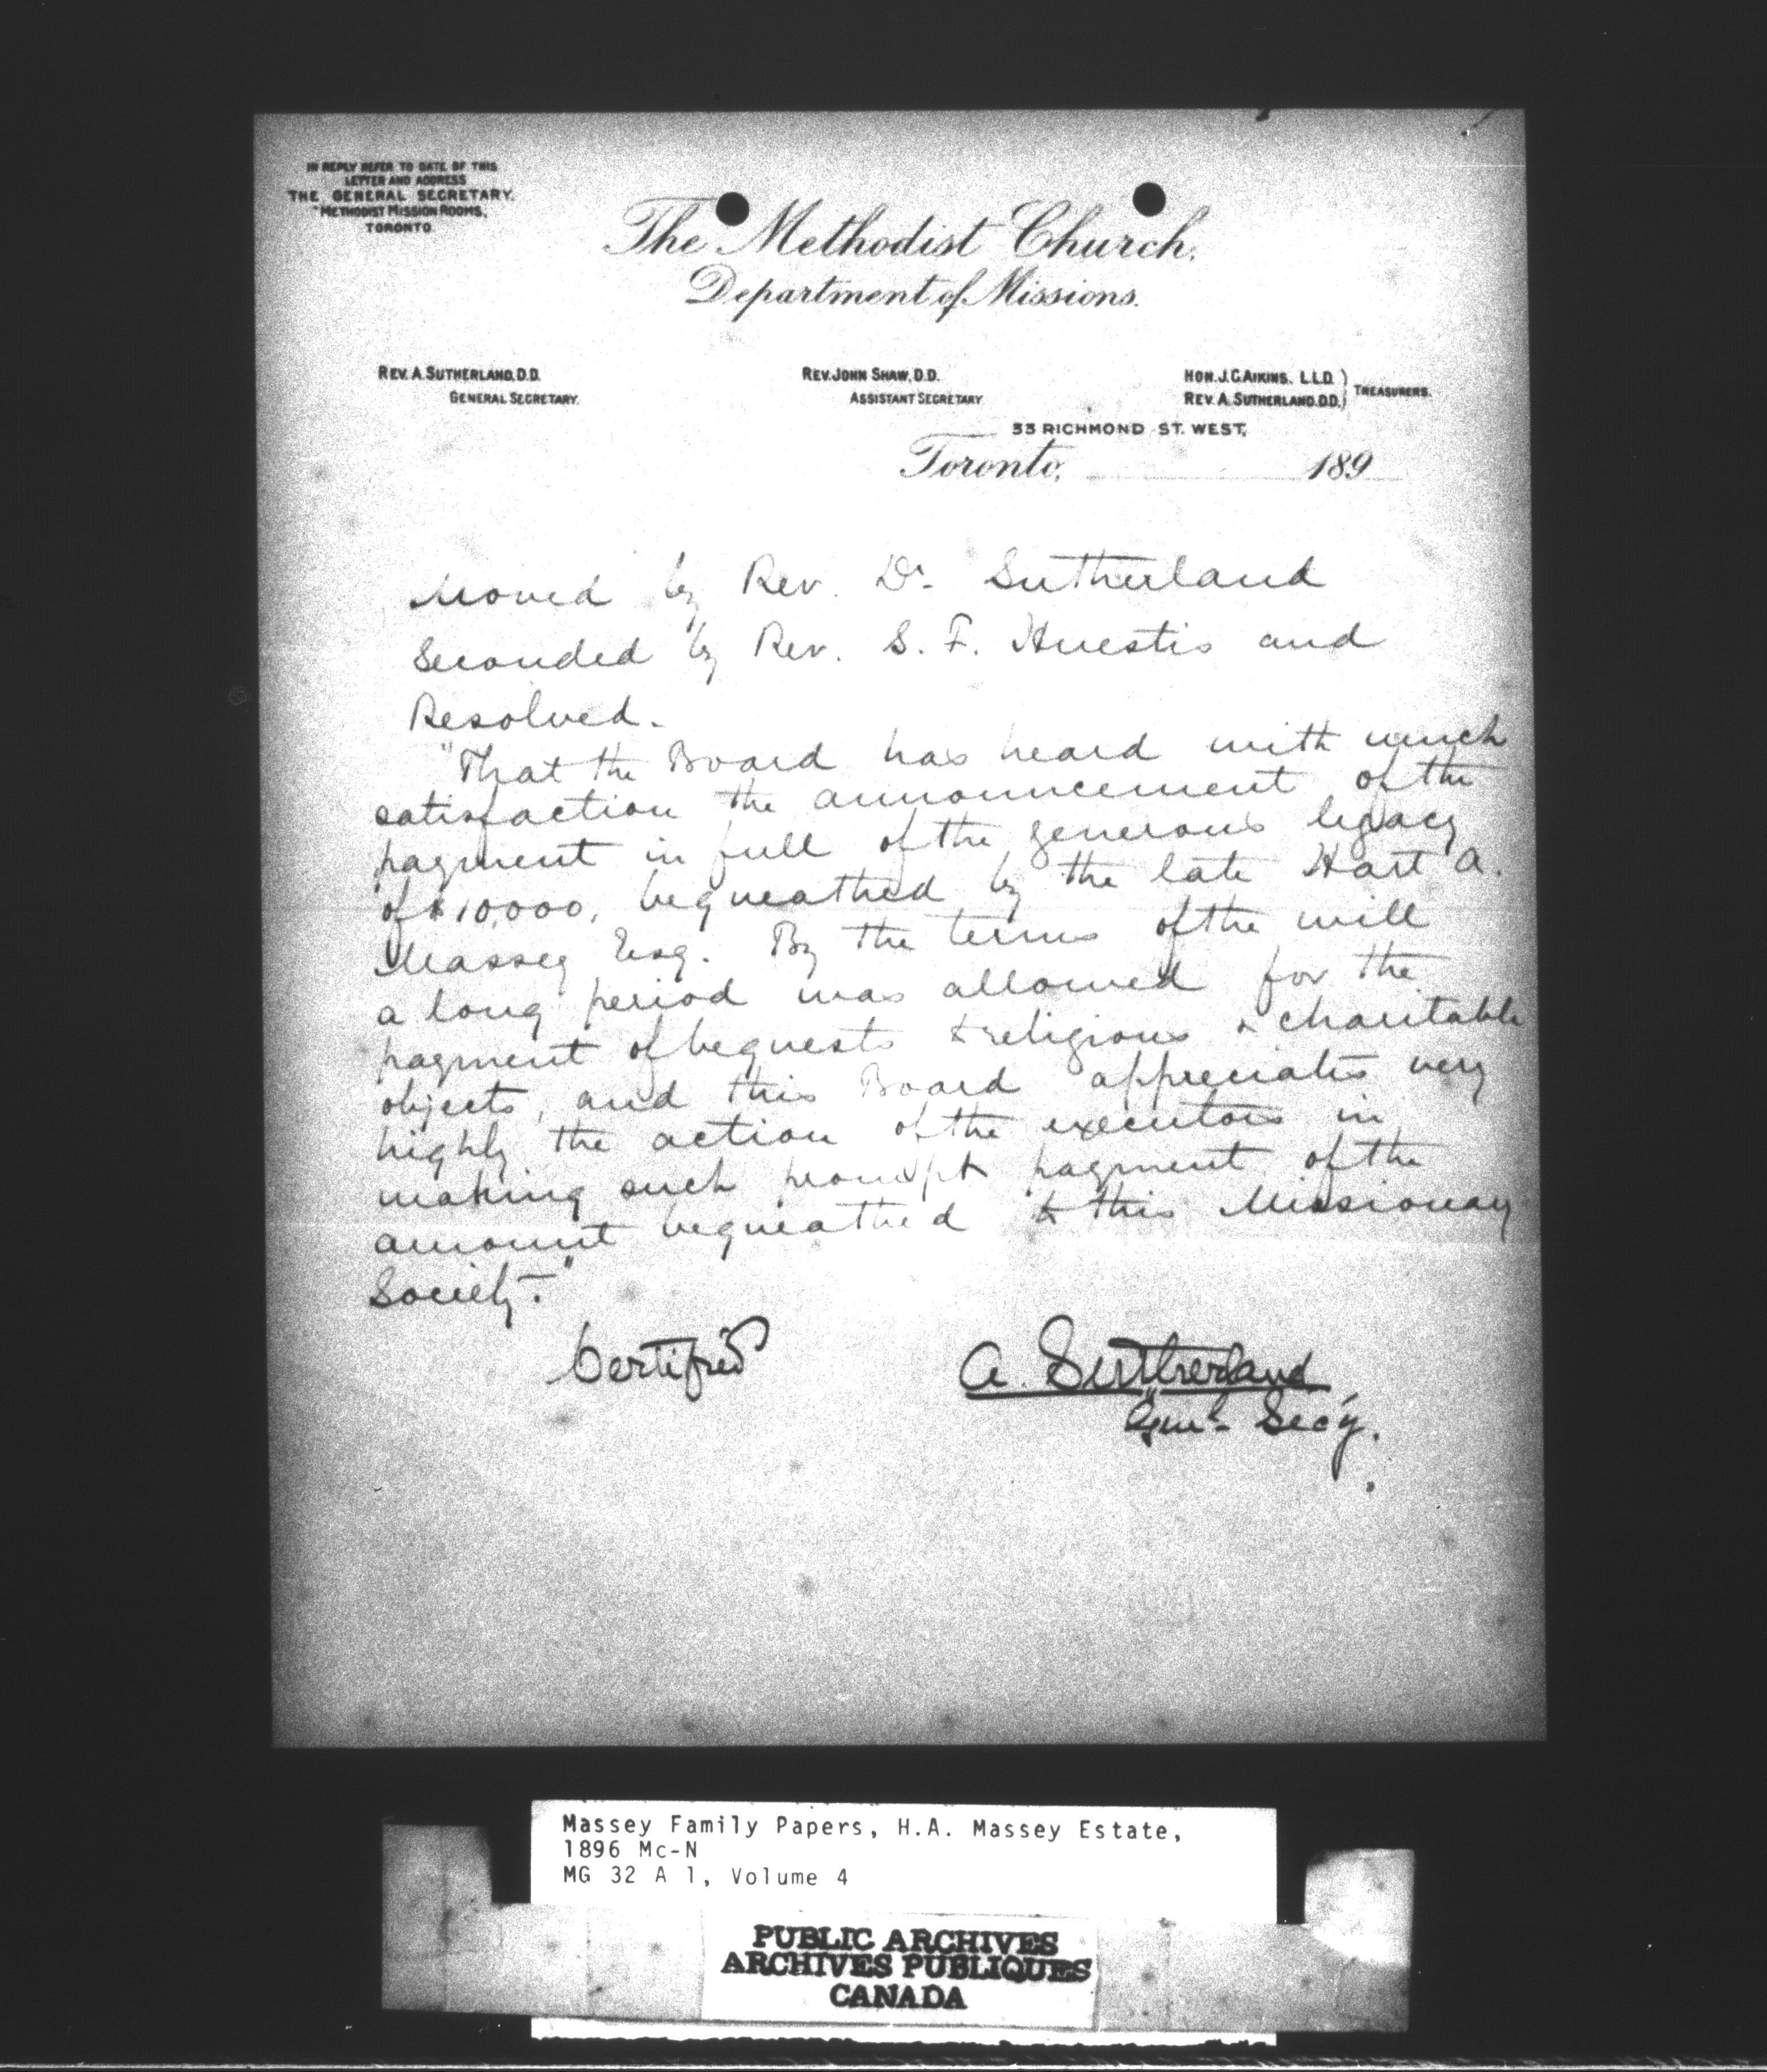 IN REPLY REFER TO DATE OF THIS
LETTER AND ADDRESS
THE GENERAL SECRETARY.
METHODIST MISSION ROOMS,
TORONTO.
The Methodist Church.
Department of Missions.
REV. A. SUTHERLAND, D.D.
GENERAL SECRETARY.
REV. JOHN SHAW, D.D.
ASSISTANT SECRETARY
HON. J. C. AIKINS. L.L.D.
REV. A. SUTHERLAND. D.D.
TREASURERS.
33 RICHMOND ST. WEST,
Toronto, 189
Moved by Rev. Dr. Sutherland
Seconded by Rev. S. F. Huestis and
Resolved.
"That the Board has heard with much
satisfaction the announcement of the
payment in full of the generous legacy
of $10,000, bequeathed by the late Hart A.
Massey Esq. By the terms of the will
a long period was allowed for the
payment of bequests to religious & charitable
objects, and this Board appreciates very
highly the action of the executors in
making such prompt payment of the
amount bequeathed to this Missionary
Society."
Certified
A. Sutherland
Genl. Secy.
Massey Family Papers, H.A. Massey Estate,
1896 Mc-N
MG 32 A 1, Volume 4
PUBLIC ARCHIVES
ARCHIVES PUBLIQUES
CANADA